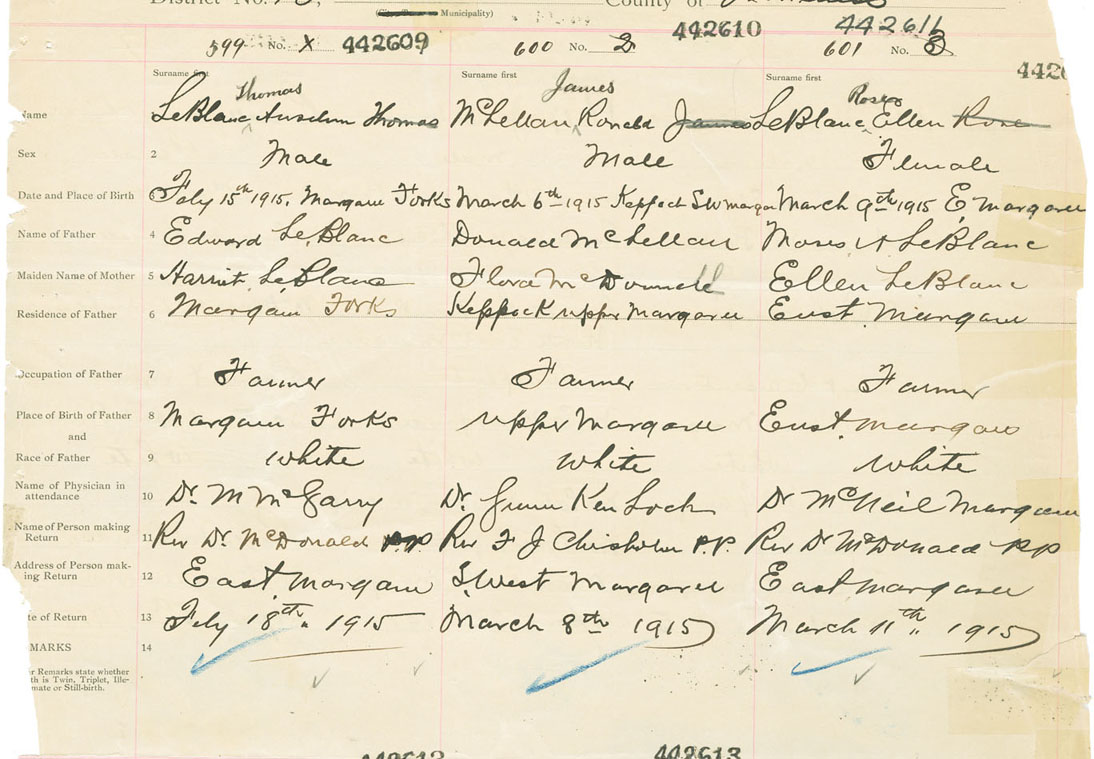 District No.
County of
Municipality)
599 No. X 442609 600 No. 2 442610 601 No. 3 442611
Surname first Surname first Surname first
Thomas James Rose
Name LeBlanc Anselm Thomas McLellan Ronald James LeBlanc Ellen Rose
Sex 2 Male Male Female
Date and Place of Birth Feby 15th 1915, Margaree Forks March 6th 1915 Keppoch SW margaree March 9th 1915 E. Margaree
Name of Father 4 Edward LeBlanc Donald McLellan Moses A LeBlanc
Maiden Name of Mother 5 Harriet LeBlanc Flora McDonnell Ellen LeBlanc
Residence of Father 6 Margaree Forks Keppock upper Margaree East Margaree
Occupation of Father 7 Farmer Farmer Farmer
Place of Birth of Father 8 Margaree Forks upper Margaree East Margaree
and
Race of Father 9 white white white
Name of Physician in
attendance 10 Dr. M McGarry Dr. Gunn Ken Loch Dr McNeil Margaree
Name of Person making
Return 11 Rev Dr. McDonald P.P. Rev F J Chisholm P.P. Rev Dr McDonald P.P.
Address of Person mak-
ing Return 12 East Margaree S. West Margaree East Margaree
te of Return 13 Feby 18th 1915 March 8th 1915 March 11th 1915
MARKS 14
r Remarks state whether
th is Twin, Triplet, Ille-
mate or Still-birth.
442612 442613